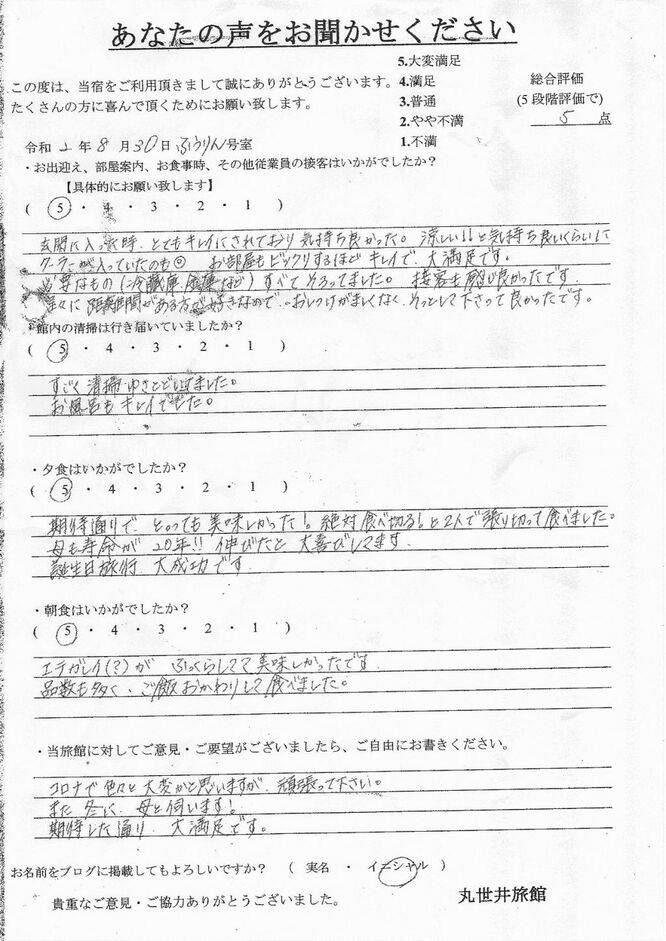 あなたの声をお聞かせください
この度は、当宿をご利用頂きまして誠にありがとうございます。
たくさんの方に喜んで頂くためにお願い致します。
5.大変満足
4.満足
3.普通
2.やや不満
1.不満
総合評価
(5段階評価で)
5 点
令和 2 年 8 月 30 日 ふうりん 号室
・お出迎え、部屋案内、お食事時、その他従業員の接客はいかがでしたか？
【具体的にお願い致します】
( 5 ・ 4 ・ 3 ・ 2 ・ 1 )
玄関に入った時、とてもキレイにされており気持ち良かった。涼しい!!と気持ち良いくらいに
クーラーが入っていたのも◎ お部屋もビックリするほどキレイで、大満足です。
必要なもの(冷蔵庫、金庫など)すべてそろってました。接客も感じ良かったです。
に距離間がある方が好きなので、おしつけがましくなく、そっとして下さって良かったです。
・館内の清掃は行き届いていましたか？
( 5 ・ 4 ・ 3 ・ 2 ・ 1 )
すごく清掃ゆきとどいてました。
お風呂もキレイでした。
・夕食はいかがでしたか？
( 5 ・ 4 ・ 3 ・ 2 ・ 1 )
期待通りで とっても美味しかった！絶対食べ切る！と2人で張り切って食べました。
母も寿命が 20年!! 伸びたと 大喜びしてます
誕生日旅行、大成功です
・朝食はいかがでしたか？
( 5 ・ 4 ・ 3 ・ 2 ・ 1 )
エテガレイ(?)が ふっくらしてて美味しかったです
品数も多く、ご飯おかわりして食べました。
・当旅館に対してご意見・ご要望がございましたら、ご自由にお書きください。
コロナで色々と大変かと思いますが、頑張って下さい。
また冬に、母と伺います！
期待した通り、大満足です。
お名前をブログに掲載してもよろしいですか？ （ 実名 ・ イニシャル ）
貴重なご意見・ご協力ありがとうございました。
丸世井旅館